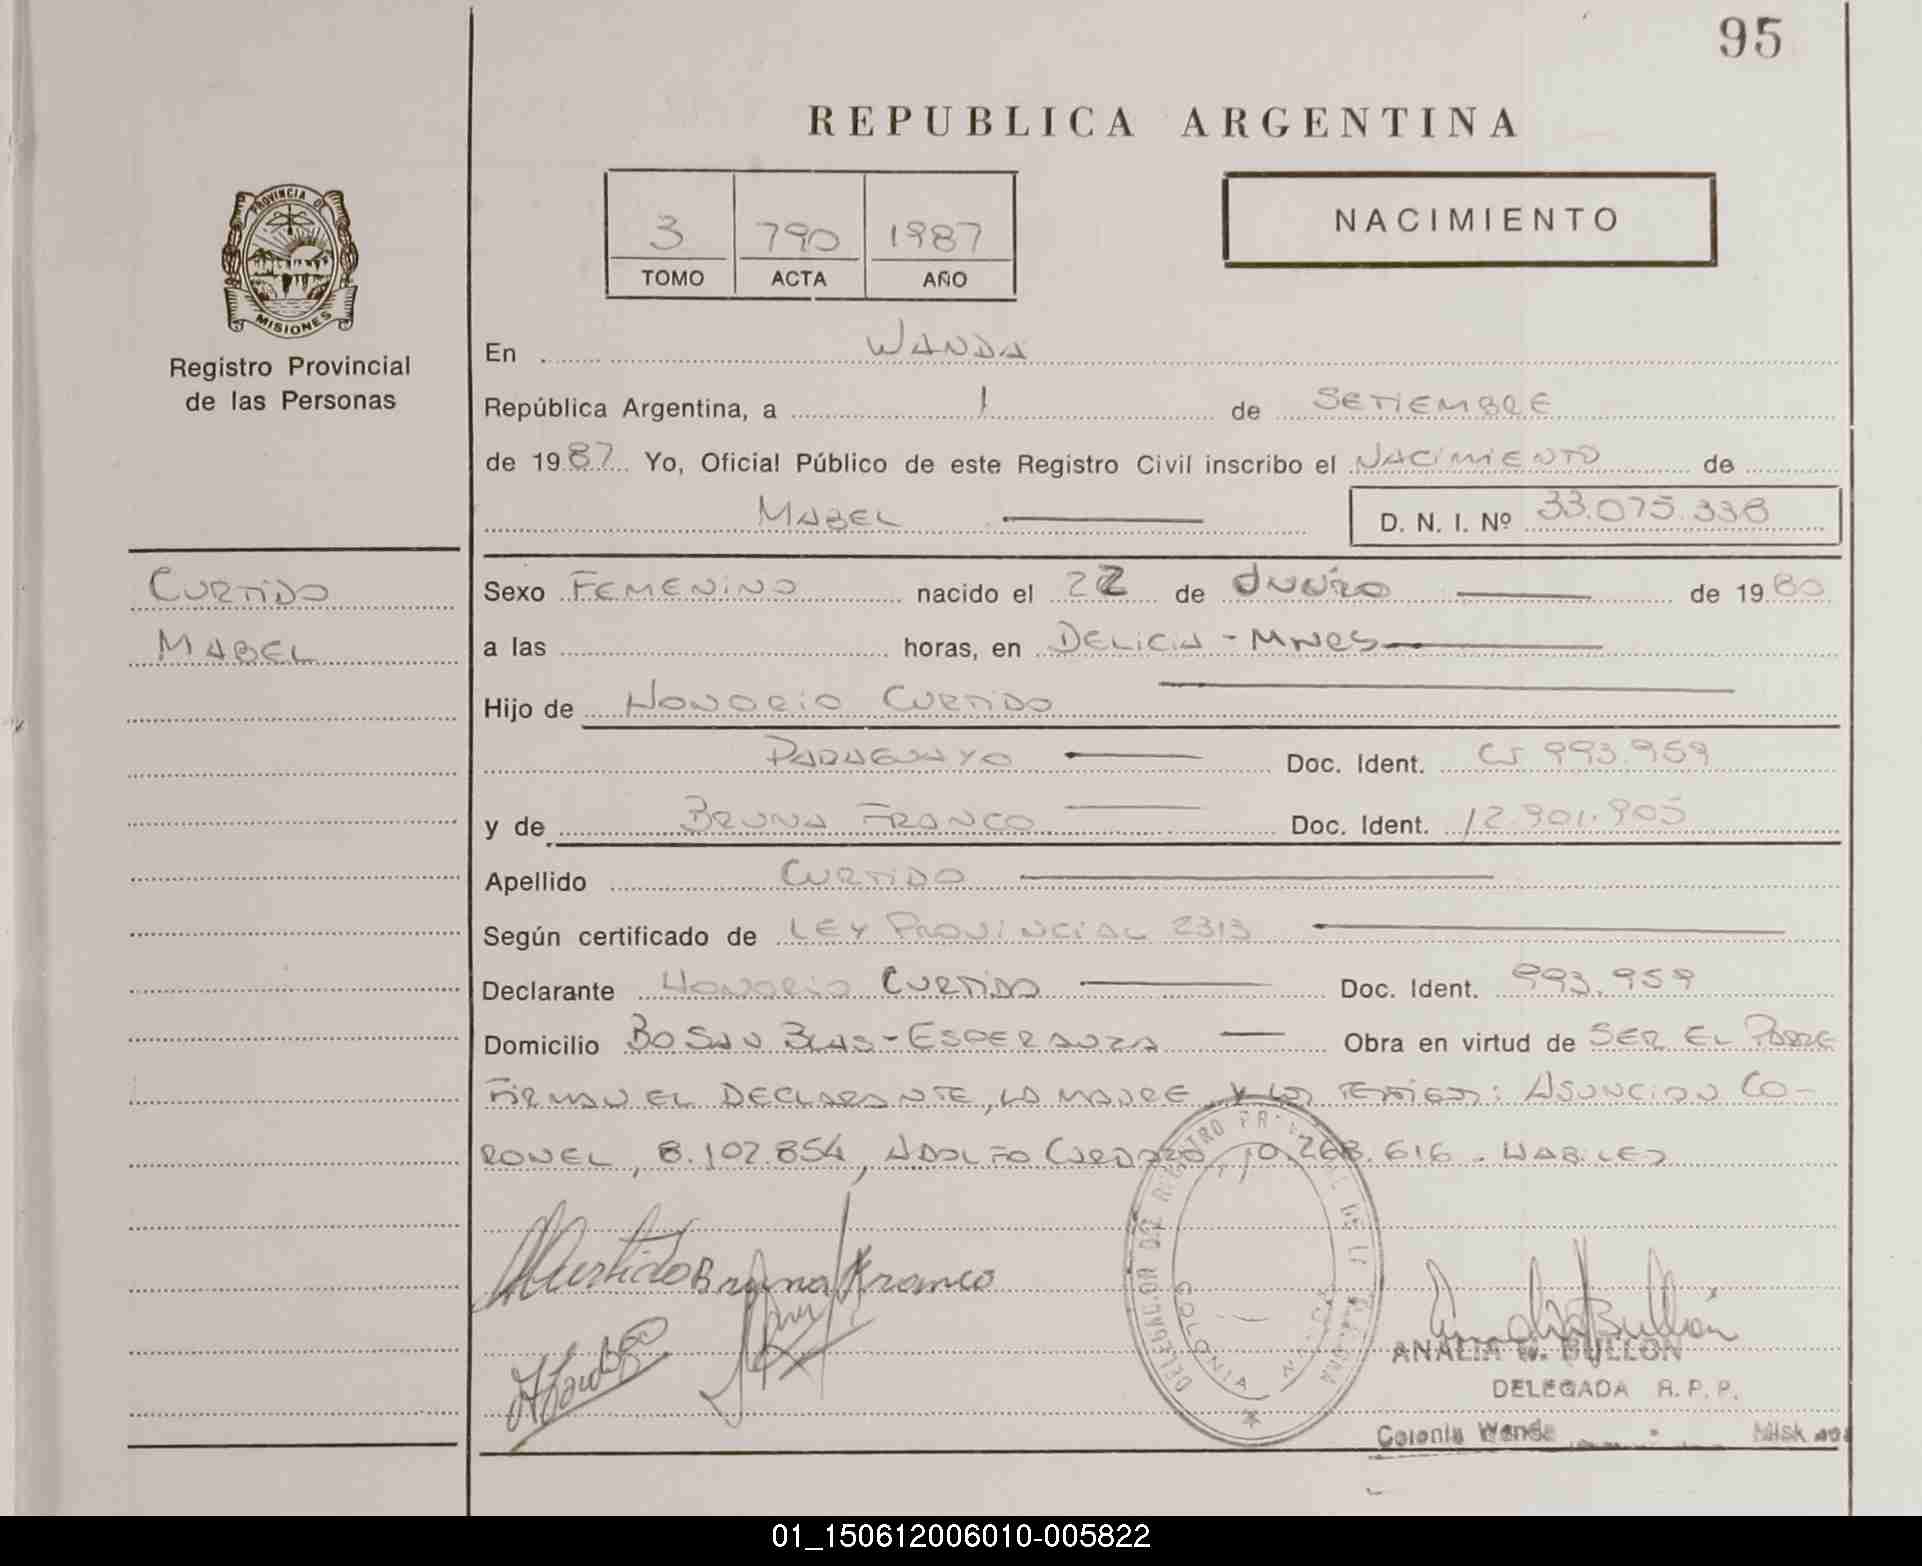 95
REPUBLICA ARGENTINA
PROVINCIA DE
MISIONES
Registro Provincial
de las Personas
3 790 1987
TOMO ACTA AÑO
NACIMIENTO
En WANDA
República Argentina, a 1 de SETIEMBRE
de 1987 Yo, Oficial Público de este Registro Civil inscribo el NACIMIENTO de
MABEL D. N. I. Nº 33.075.338
CURTIDO
MABEL
Sexo FEMENINO nacido el 22 de de 1980
a las horas, en DELICIA - MNES
Hijo de HONORIO CURTIDO
PARAGUAYO Doc. Ident. CI 993.959
y de BRUNA FRANCO Doc. Ident. 12.901.905
Apellido CURTIDO
Según certificado de LEY PROVINCIAL 2313
Declarante HONORIO CURTIDO Doc. Ident. 993.959
Domicilio Bo SAN BLAS - ESPERANZA Obra en virtud de SER EL PADRE
FIRMAN EL DECLARANTE, LA MADRE Y LOS TESTIGOS: ASUNCION CO-
RONEL, 8.102.854, ADOLFO CARDOZO, 10.268.616. HABILES
HCurtido Bruna Franco
Analia Bullón
ANALIA W. BULLON
DELEGADA R. P. P.
Colonia Wanda Misiones
01_150612006010-005822